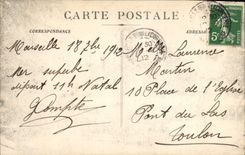 CARTE POSTALE
CORRESPONDANCE
Marseille 18 7bre 1912
Mer superbe
départ 11h Natal
Melle Laurence
Martin
10 Place de l'Eglise
Pont du Las
Toulon